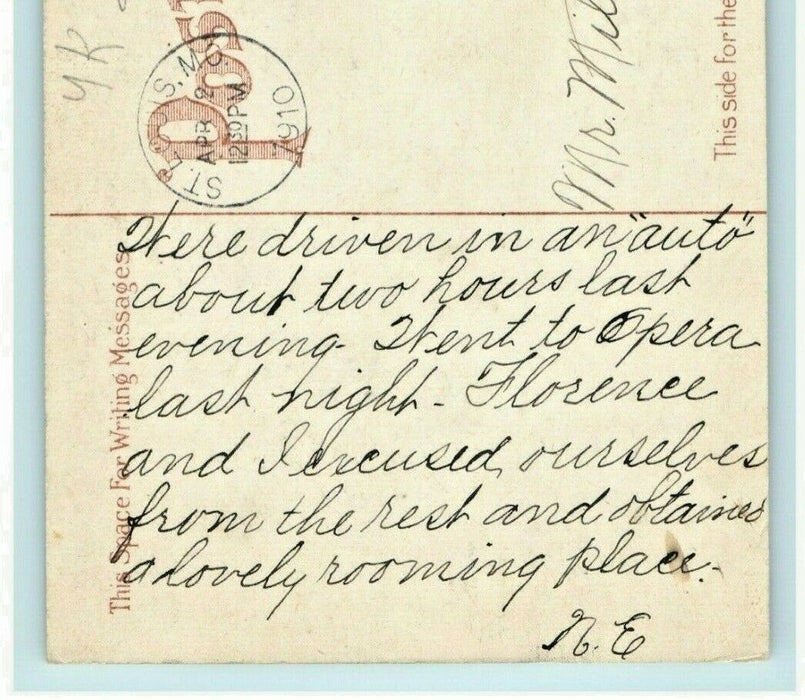 POST
ST. LOUIS, MO.
APR 2
12 30 PM
1910
Mr. Mil
This side for the
This Space For Writing Messages
Were driven in an "auto"
about two hours last
evening - Went to Opera
last night - Florence
and I excused ourselves
from the rest and obtained
a lovely rooming place.
N. E